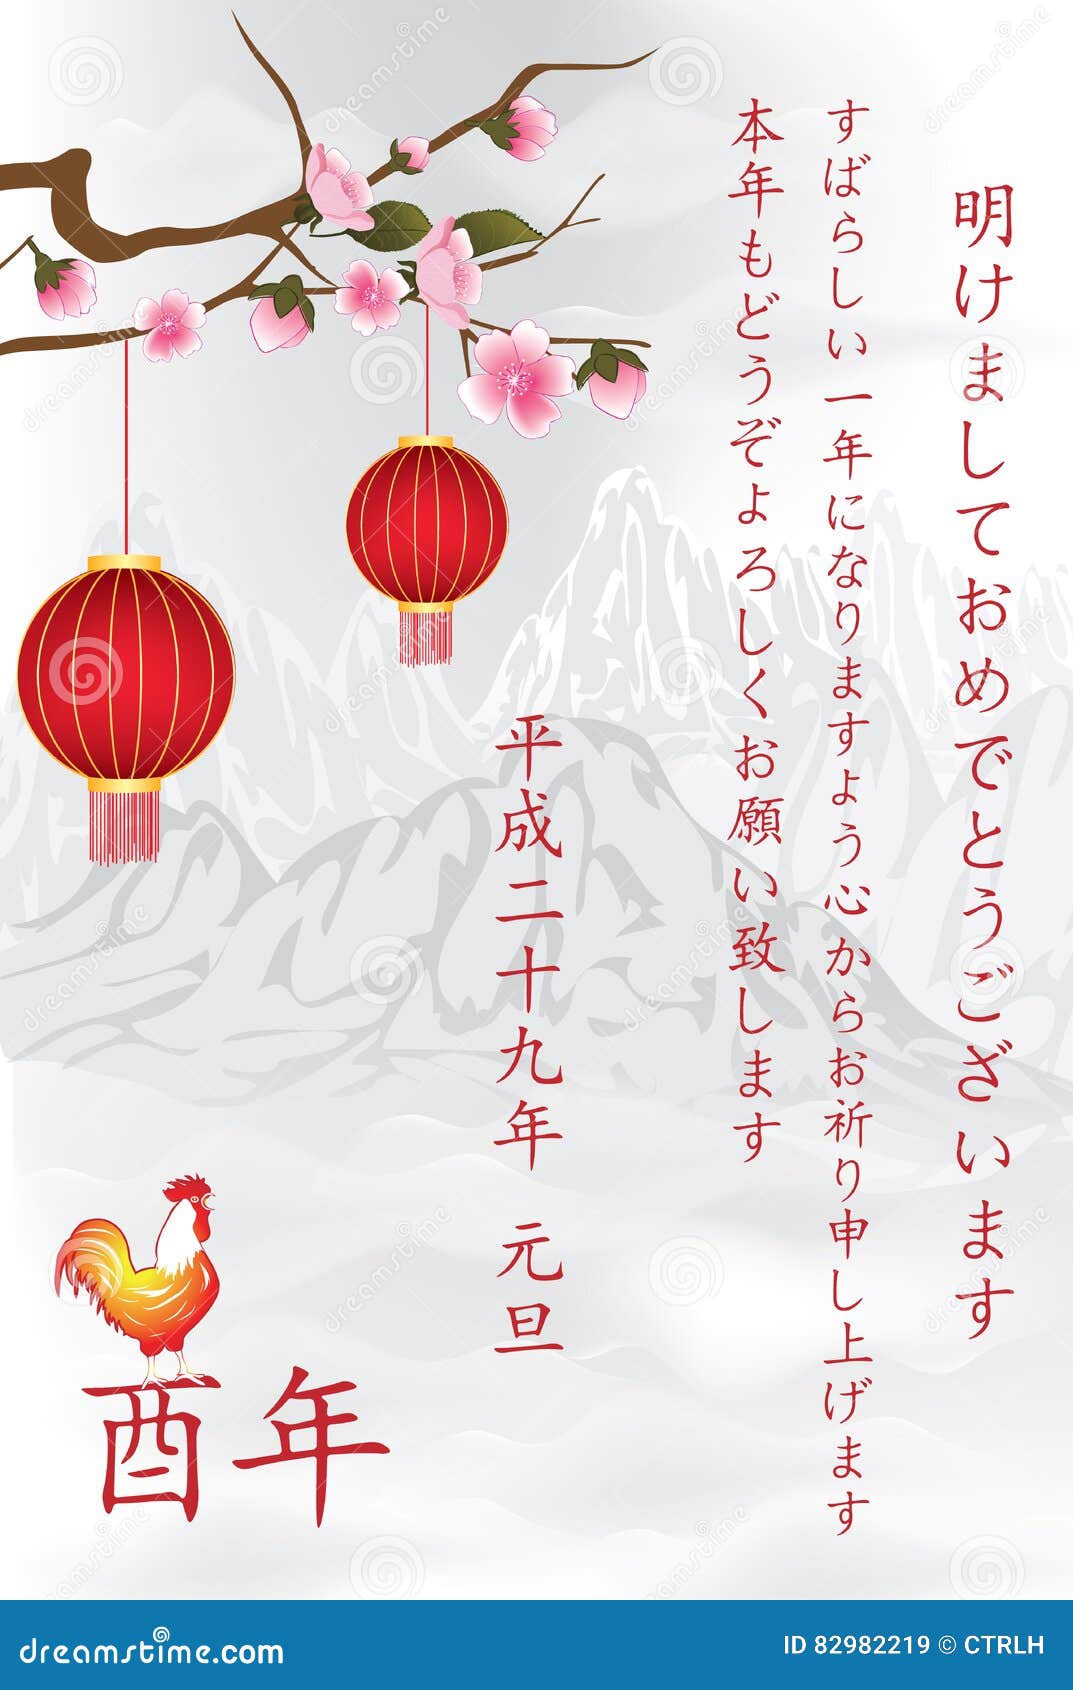 明けましておめでとうございます
すばらしい一年になりますよう心からお祈り申し上げます
本年もどうぞよろしくお願い致します
平成二十九年 元旦
酉年
dreamstime.com
ID 82982219 © CTRLH